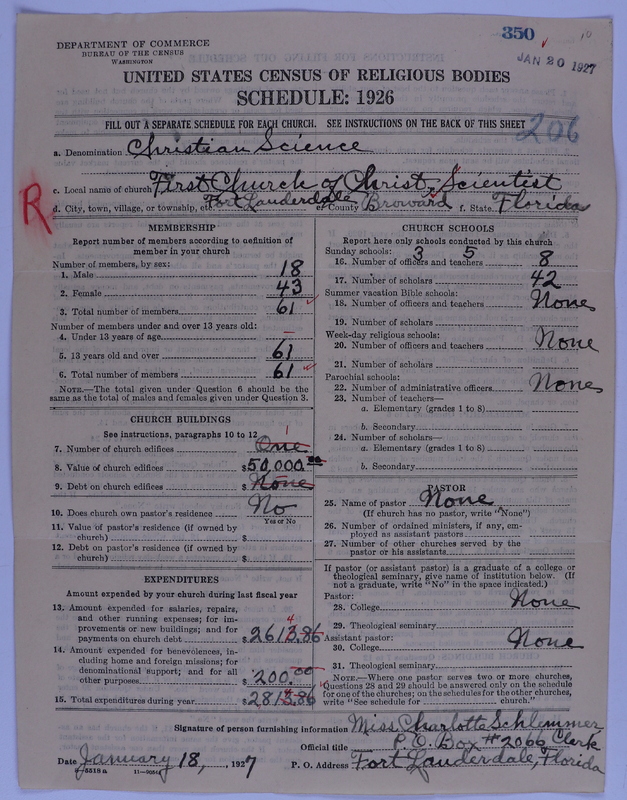 350
DEPARTMENT OF COMMERCE
BUREAU OF THE CENSUS
WASHINGTON
JAN 20 1927
UNITED STATES CENSUS OF RELIGIOUS BODIES
SCHEDULE: 1926
FILL OUT A SEPARATE SCHEDULE FOR EACH CHURCH. SEE INSTRUCTIONS ON THE BACK OF THIS SHEET
206
a. Denomination Christian Science
c. Local name of church First Church of Christ, Scientist
R
d. City, town, village, or township, etc. Fort Lauderdale e. County Broward f. State Florida
MEMBERSHIP
Report number of members according to definition of
member in your church
Number of members, by sex:
1. Male 18
2. Female 43
3. Total number of members 61
Number of members under and over 13 years old:
4. Under 13 years of age —
5. 13 years old and over 61
6. Total number of members 61
NOTE.—The total given under Question 6 should be the
same as the total of males and females given under Question 3.
CHURCH BUILDINGS
See instructions, paragraphs 10 to 12
7. Number of church edifices One 1
8. Value of church edifices $50,000.00
9. Debt on church edifices $ None
10. Does church own pastor's residence No
Yes or No
11. Value of pastor's residence (if owned by
church) $
12. Debt on pastor's residence (if owned by
church) $
EXPENDITURES
Amount expended by your church during last fiscal year
13. Amount expended for salaries, repairs,
and other running expenses; for im-
provements or new buildings; and for
payments on church debt $2613.86 4
14. Amount expended for benevolences, in-
cluding home and foreign missions; for
denominational support; and for all
other purposes $200.00
15. Total expenditures during year $2813.86
CHURCH SCHOOLS
Report here only schools conducted by this church
Sunday schools: 3 5
16. Number of officers and teachers 8
17. Number of scholars 42
Summer vacation Bible schools:
18. Number of officers and teachers None
19. Number of scholars
Week-day religious schools:
20. Number of officers and teachers None
21. Number of scholars
Parochial schools:
22. Number of administrative officers None
23. Number of teachers—
a. Elementary (grades 1 to 8)
b. Secondary
24. Number of scholars—
a. Elementary (grades 1 to 8)
b. Secondary
PASTOR
25. Name of pastor None
(If church has no pastor, write "None")
26. Number of ordained ministers, if any, em-
ployed as assistant pastors
27. Number of other churches served by the
pastor or his assistants
If pastor (or assistant pastor) is a graduate of a college or
theological seminary, give name of institution below. (If
not a graduate, write "No" in the space indicated.)
Pastor:
28. College None
29. Theological seminary
Assistant pastor:
30. College None
31. Theological seminary
NOTE.—Where one pastor serves two or more churches,
Questions 28 and 29 should be answered only on the schedule
for one of the churches; on the schedules for the other churches,
write "See schedule for church."
Signature of person furnishing information Miss Charlotte Schlemmer
Official title P.O. Box #2066 Clerk
Date January 18, 1927 P. O. Address Fort Lauderdale, Florida
8518a